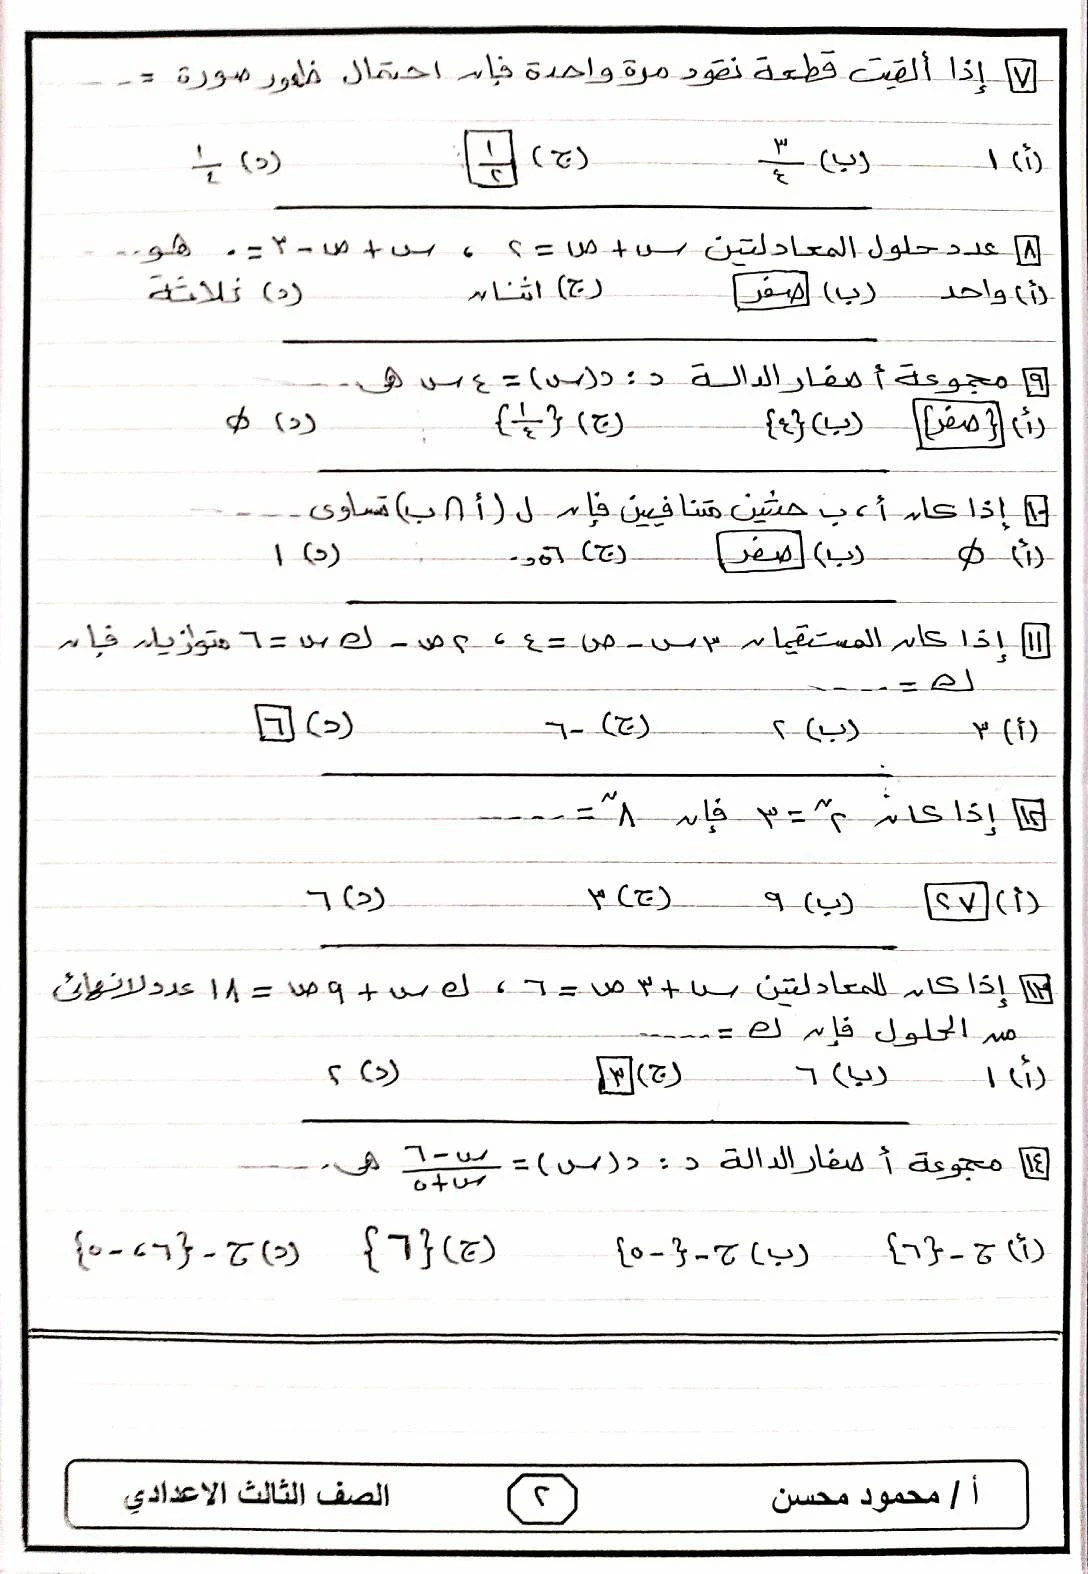 ٧ إذا ألقيت قطعة نقود مرة واحدة فإن احتمال ظهور صورة = ....
(أ) ١ (ب) ٣/٤ (ج) ١/٢ (د) ١/٤
٨ عدد حلول المعادلتين س + ص = ٢ ، س + ص - ٣ = ٠ هو....
(أ) واحد (ب) صفر (ج) اثنان (د) ثلاثة
٩ مجموعة أصفار الدالة د : د(س) = ٤ س هى....
(أ) {صفر} (ب) {٤} (ج) {١/٤} (د) ∅
١٠ إذا كان أ ، ب حدثين متنافيين فإن ل (أ ∩ ب) تساوى ....
(أ) ∅ (ب) صفر (ج) ٠,٥٦ (د) ١
١١ إذا كان المستقيمان ٣ س - ص = ٤ ، ٢ ص - ك س = ٦ متوازيان فإن
ك = ....
(أ) ٣ (ب) ٢ (ج) -٦ (د) ٦
١٢ إذا كان ٢ⁿ = ٣ فإن ٨ⁿ = ....
(أ) ٢٧ (ب) ٩ (ج) ٣ (د) ٦
١٣ إذا كان للمعادلتين س + ٣ ص = ٦ ، ك س + ٩ ص = ١٨ عدد لانهائى
من الحلول فإن ك = ....
(أ) ١ (ب) ٦ (ج) ٣ (د) ٢
١٤ مجموعة أصفار الدالة د : د(س) = (س - ٦)/(س + ٥) هى....
(أ) ح - {٦} (ب) ح - {-٥} (ج) {٦} (د) ح - {٦ ، -٥}
أ / محمود محسن ٢ الصف الثالث الاعدادي